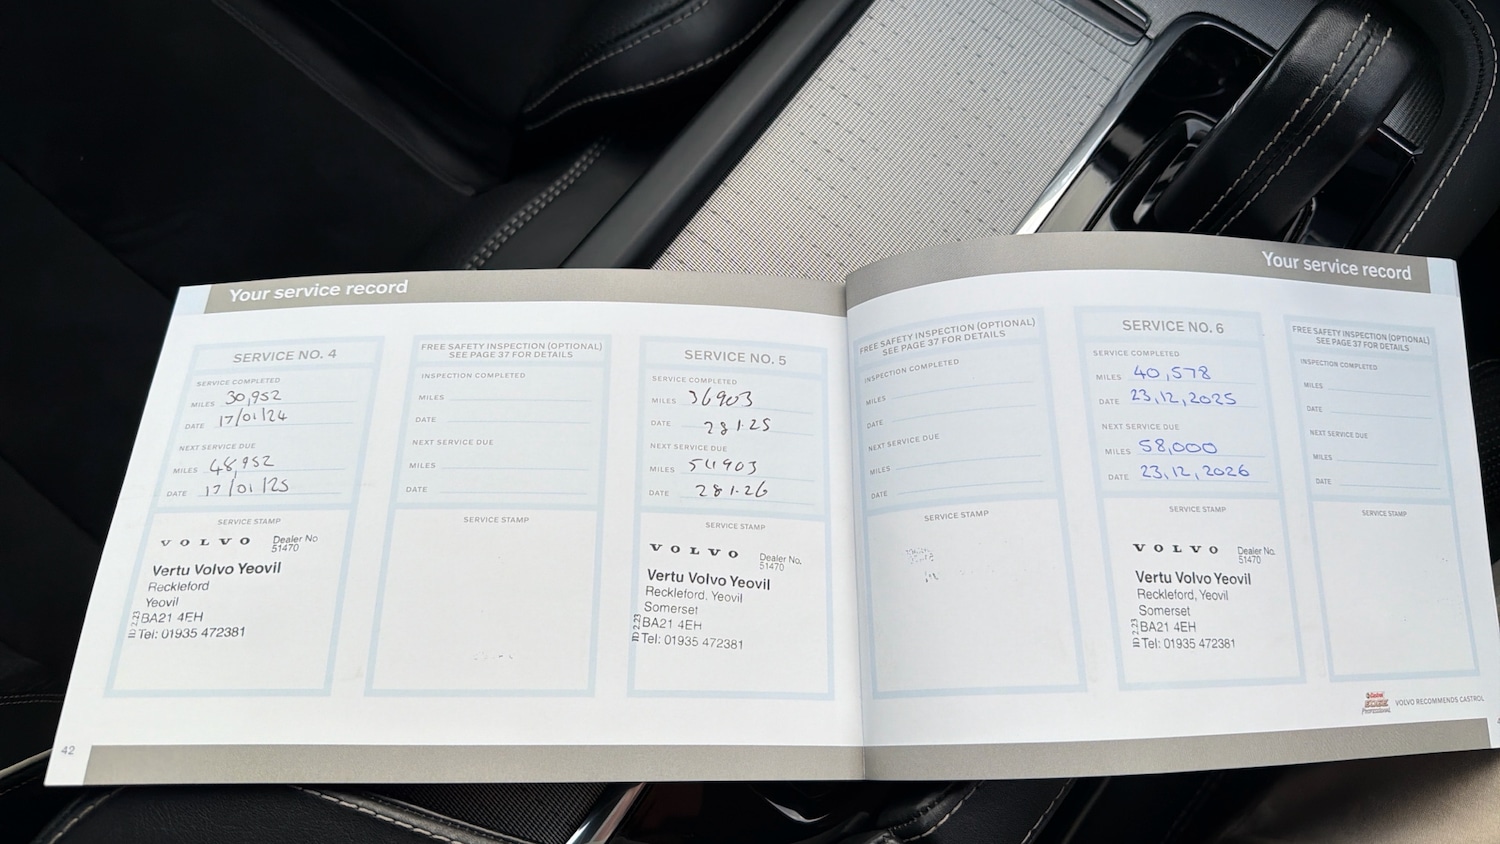 Your service record
SERVICE NO. 4
SERVICE COMPLETED
MILES 30,952
DATE 17/01/24
NEXT SERVICE DUE
MILES 48,952
DATE 17/01/25
SERVICE STAMP
VOLVO
Dealer No
51470
Vertu Volvo Yeovil
Reckleford
Yeovil
BA21 4EH
Tel: 01935 472381
ID 2.23
FREE SAFETY INSPECTION (OPTIONAL)
SEE PAGE 37 FOR DETAILS
INSPECTION COMPLETED
MILES
DATE
NEXT SERVICE DUE
MILES
DATE
SERVICE STAMP
SERVICE NO. 5
SERVICE COMPLETED
MILES 36903
DATE 28 1·25
NEXT SERVICE DUE
MILES 54903
DATE 28 1·26
SERVICE STAMP
VOLVO
Dealer No.
51470
Vertu Volvo Yeovil
Reckleford, Yeovil
Somerset
BA21 4EH
Tel: 01935 472381
ID 2.23
42
Your service record
FREE SAFETY INSPECTION (OPTIONAL)
SEE PAGE 37 FOR DETAILS
INSPECTION COMPLETED
MILES
DATE
NEXT SERVICE DUE
MILES
DATE
SERVICE STAMP
SERVICE NO. 6
SERVICE COMPLETED
MILES 40,578
DATE 23,12,2025
NEXT SERVICE DUE
MILES 58,000
DATE 23,12,2026
SERVICE STAMP
VOLVO
Dealer No.
51470
Vertu Volvo Yeovil
Reckleford, Yeovil
Somerset
BA21 4EH
Tel: 01935 472381
ID 2.23
FREE SAFETY INSPECTION (OPTIONAL)
SEE PAGE 37 FOR DETAILS
INSPECTION COMPLETED
MILES
DATE
NEXT SERVICE DUE
MILES
DATE
SERVICE STAMP
Castrol
EDGE
Professional
VOLVO RECOMMENDS CASTROL